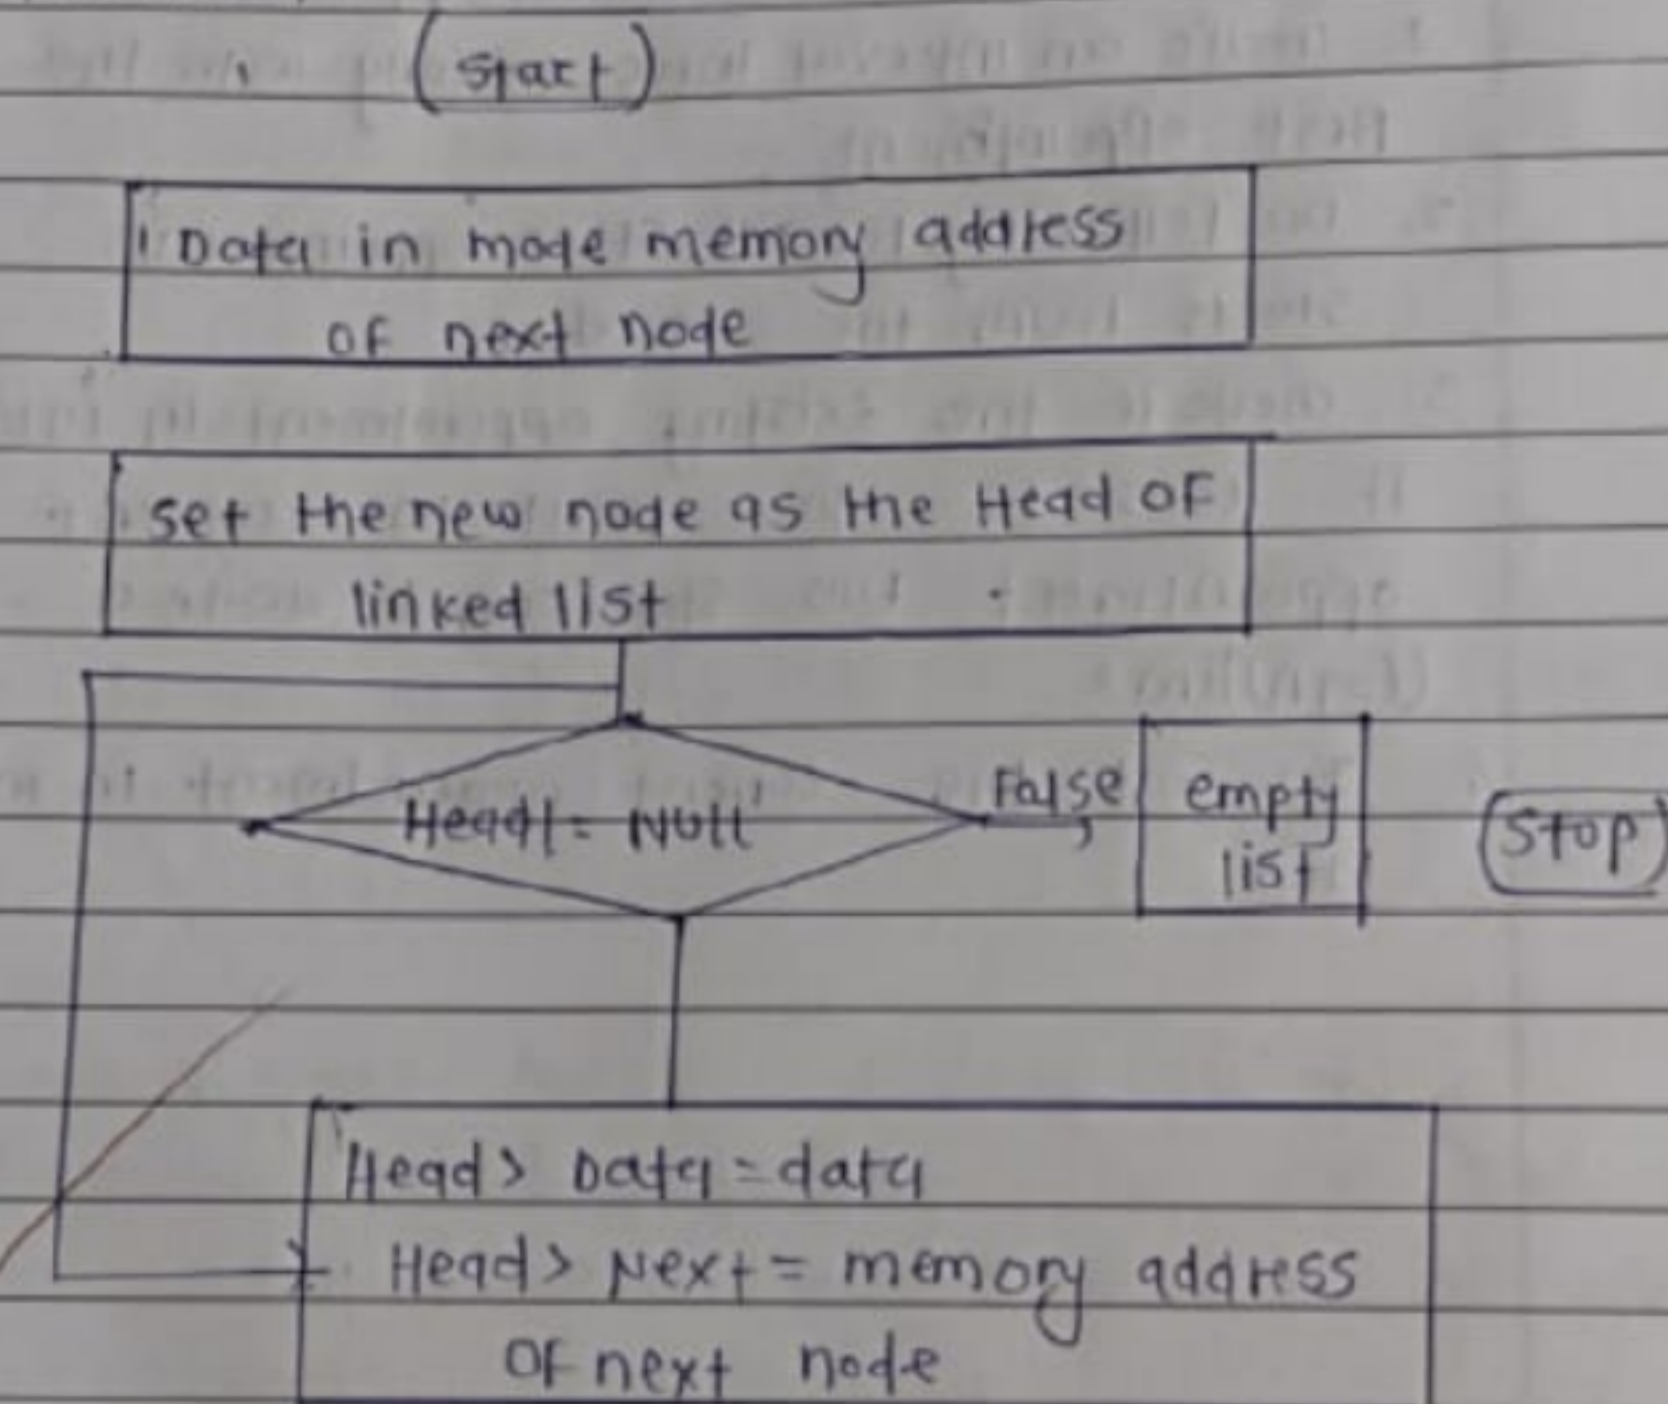 Start
Data in mode memory address
of next node
set the new node as the Head of
linked list
Head != Null
False
empty
list
Stop
Head> Data = data
Head> Next = memory address
of next node